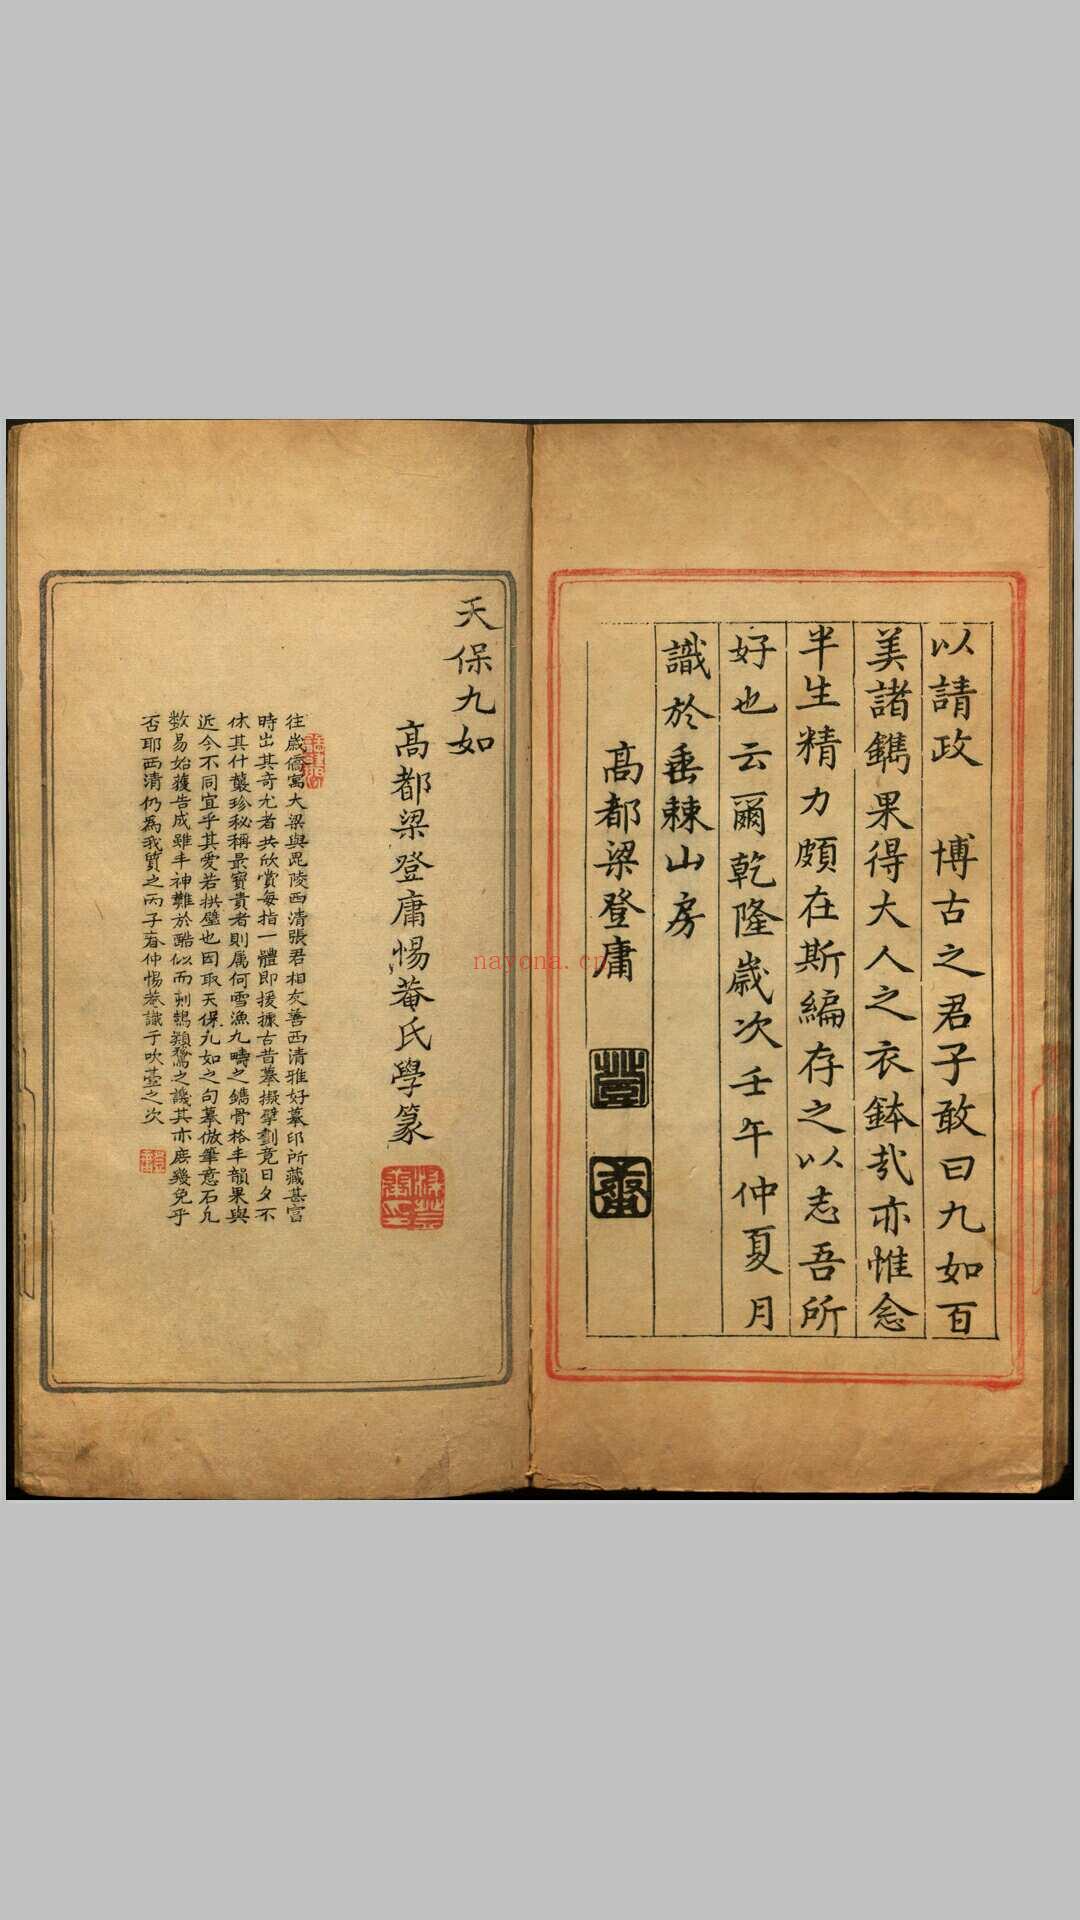 以請政　博古之君子敢曰九如百
美諸鐫果得大人之衣鉢哉亦惟念
半生精力頗在斯編存之以志吾所
好也云爾乾隆歲次壬午仲夏月
識於垂棘山房
高都梁登庸
登
庸
天保九如
高都梁登庸惕菴氏學篆
往歲僑寓大梁與毘陵西清張君相友善西清雅好摹印所藏甚富
時出其奇尤者共欣賞每指一體即援據古昔摹擬擘劃竟日夕不
休其什襲珍秘稱最寶貴者則屬何雪漁九疇之鐫骨格丰韻果與
近今不同宜乎其愛若拱璧也因取天保九如之句摹倣筆意石凡
数易始獲告成雖丰神難於酷似而刻鵠類鶩之譏其亦庶幾免乎
否耶西清仍為我質之丙子春仲惕菴識于吹臺之次
nayona.cn